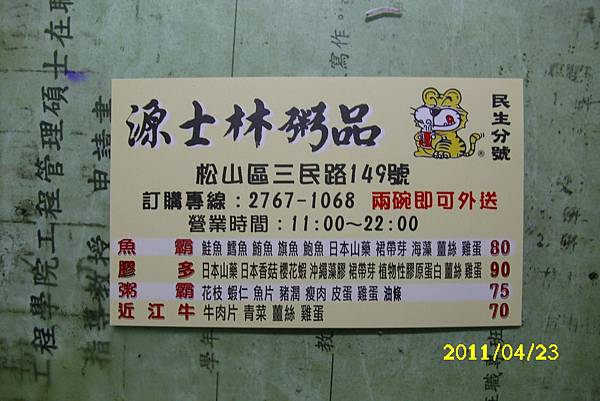 源士林粥品
民生分號
松山區三民路149號
訂購專線：2767-1068 兩碗即可外送
營業時間：11:00~22:00
魚霸 鮭魚 鱈魚 鮪魚 旗魚 鮑魚 日本山藥 裙帶芽 海藻 薑絲 雞蛋 80
膠多 日本山藥 日本香菇 櫻花蝦 沖繩藻膠 裙帶芽 植物性膠原蛋白 薑絲 雞蛋 90
粥霸 花枝 蝦仁 魚片 豬潤 瘦肉 皮蛋 雞蛋 油條 75
近江牛 牛肉片 青菜 薑絲 雞蛋 70
工程學院工程管理碩士在職
申請書
指導教授
寫作。
2011/04/23